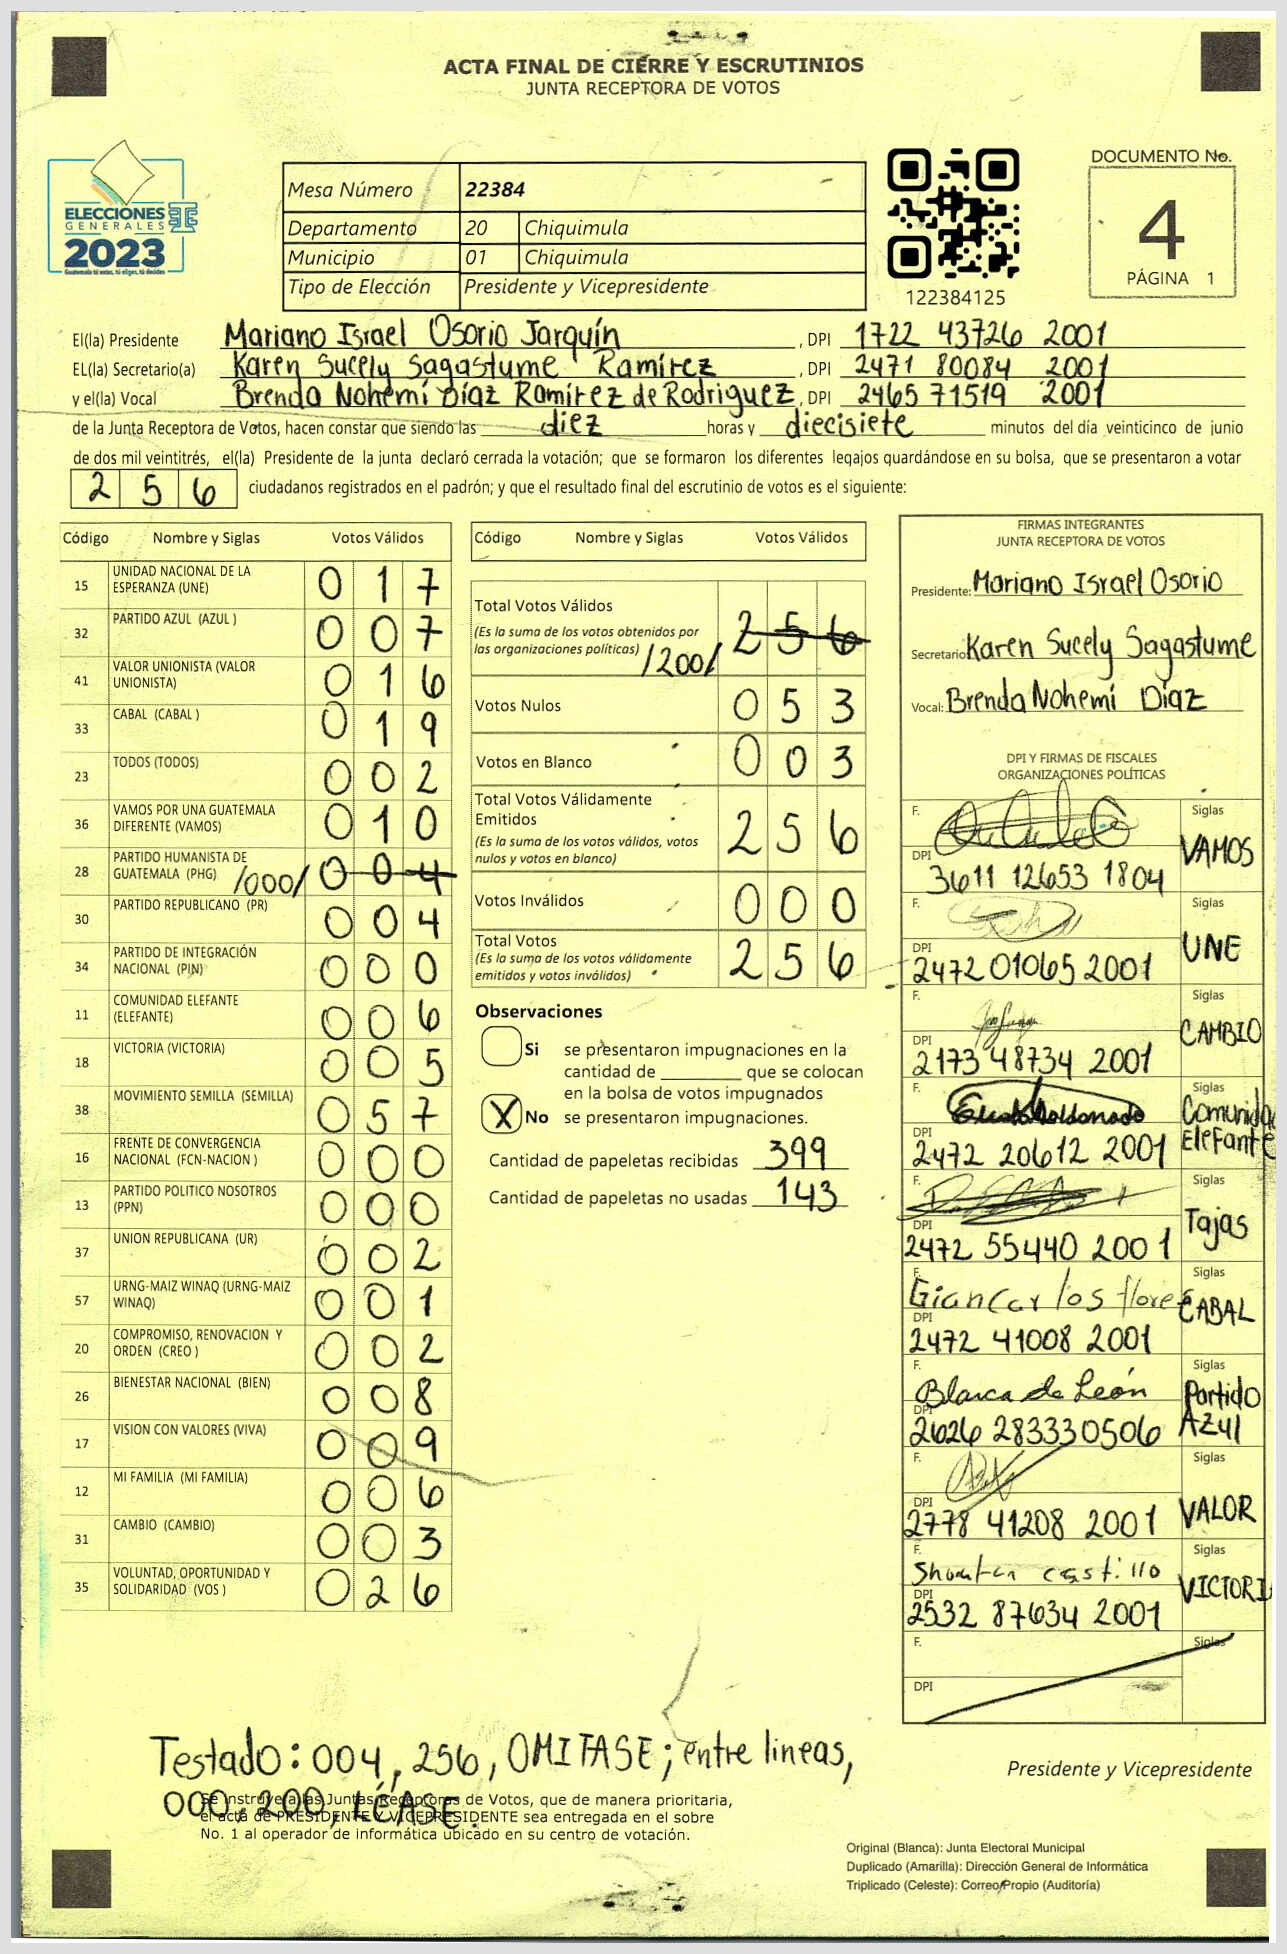 ACTA FINAL DE CIERRE Y ESCRUTINIOS
JUNTA RECEPTORA DE VOTOS
ELECCIONES
GENERALES
2023
Guatemala tú votas, tú eliges, tú decides
Mesa Número 22384
Departamento 20 Chiquimula
Municipio 01 Chiquimula
Tipo de Elección Presidente y Vicepresidente
122384125
DOCUMENTO No.
4
PÁGINA 1
El(la) Presidente Mariano Israel Osorio Jarquín, DPI 1722 43726 2001
EL(la) Secretario(a) Karen Sucely Sagastume Ramírez, DPI 2471 80084 2001
y el(la) Vocal Brenda Nohemí Díaz Ramírez de Rodriguez, DPI 2465 71519 2001
de la Junta Receptora de Votos, hacen constar que siendo las diez horas y diecisiete minutos del día veinticinco de junio
de dos mil veintitrés, el(la) Presidente de la junta declaró cerrada la votación; que se formaron los diferentes legajos quardándose en su bolsa, que se presentaron a votar
256 ciudadanos registrados en el padrón; y que el resultado final del escrutinio de votos es el siguiente:
Código Nombre y Siglas Votos Válidos
15 UNIDAD NACIONAL DE LA ESPERANZA (UNE) 017
32 PARTIDO AZUL (AZUL ) 007
41 VALOR UNIONISTA (VALOR UNIONISTA) 016
33 CABAL (CABAL ) 019
23 TODOS (TODOS) 002
36 VAMOS POR UNA GUATEMALA DIFERENTE (VAMOS) 010
28 PARTIDO HUMANISTA DE GUATEMALA (PHG) /000/ 004
30 PARTIDO REPUBLICANO (PR) 004
34 PARTIDO DE INTEGRACIÓN NACIONAL (PIN) 000
11 COMUNIDAD ELEFANTE (ELEFANTE) 006
18 VICTORIA (VICTORIA) 005
38 MOVIMIENTO SEMILLA (SEMILLA) 057
16 FRENTE DE CONVERGENCIA NACIONAL (FCN-NACION ) 000
13 PARTIDO POLITICO NOSOTROS (PPN) 000
37 UNION REPUBLICANA (UR) 002
57 URNG-MAIZ WINAQ (URNG-MAIZ WINAQ) 001
20 COMPROMISO, RENOVACION Y ORDEN (CREO ) 002
26 BIENESTAR NACIONAL (BIEN) 008
17 VISION CON VALORES (VIVA) 009
12 MI FAMILIA (MI FAMILIA) 006
31 CAMBIO (CAMBIO) 003
35 VOLUNTAD, OPORTUNIDAD Y SOLIDARIDAD (VOS ) 026
Código Nombre y Siglas Votos Válidos
Total Votos Válidos 256
(Es la suma de los votos obtenidos por
las organizaciones políticas) /200/
Votos Nulos 053
Votos en Blanco 003
Total Votos Válidamente
Emitidos 256
(Es la suma de los votos válidos, votos
nulos y votos en blanco)
Votos Inválidos 000
Total Votos 256
(Es la suma de los votos válidamente
emitidos y votos inválidos)
Observaciones
Si se presentaron impugnaciones en la
cantidad de ________ que se colocan
en la bolsa de votos impugnados
X No se presentaron impugnaciones.
Cantidad de papeletas recibidas 399
Cantidad de papeletas no usadas 143
FIRMAS INTEGRANTES
JUNTA RECEPTORA DE VOTOS
Presidente: Mariano Israel Osorio
Secretario Karen Sucely Sagastume
Vocal: Brenda Nohemí Díaz
DPI Y FIRMAS DE FISCALES
ORGANIZACIONES POLÍTICAS
F. Siglas
VAMOS
DPI 3611 12653 1804
F. Siglas
UNE
DPI 2472 01065 2001
F. Siglas
CAMBIO
DPI 2173 48734 2001
F. Siglas
Comunidad
Elefante
DPI 2472 20612 2001
F. Siglas
Tajas
DPI 2472 55440 2001
F. Giancarlos flores Siglas
CABAL
DPI 2472 41008 2001
F. Blanca de León Siglas
Partido
Azul
DPI 2626 28333 0506
F. Siglas
VALOR
DPI 2778 41208 2001
F. castillo Siglas
VICTORI
DPI 2532 87634 2001
F. Siglas
DPI
Testado: 004, 256, OMITASE; entre lineas,
000, 200, LÉASE.
Se instruye a las Juntas Receptoras de Votos, que de manera prioritaria,
el acta de PRESIDENTE Y VICEPRESIDENTE sea entregada en el sobre
No. 1 al operador de informática ubicado en su centro de votación.
Presidente y Vicepresidente
Original (Blanca): Junta Electoral Municipal
Duplicado (Amarilla): Dirección General de Informática
Triplicado (Celeste): Correo Propio (Auditoría)